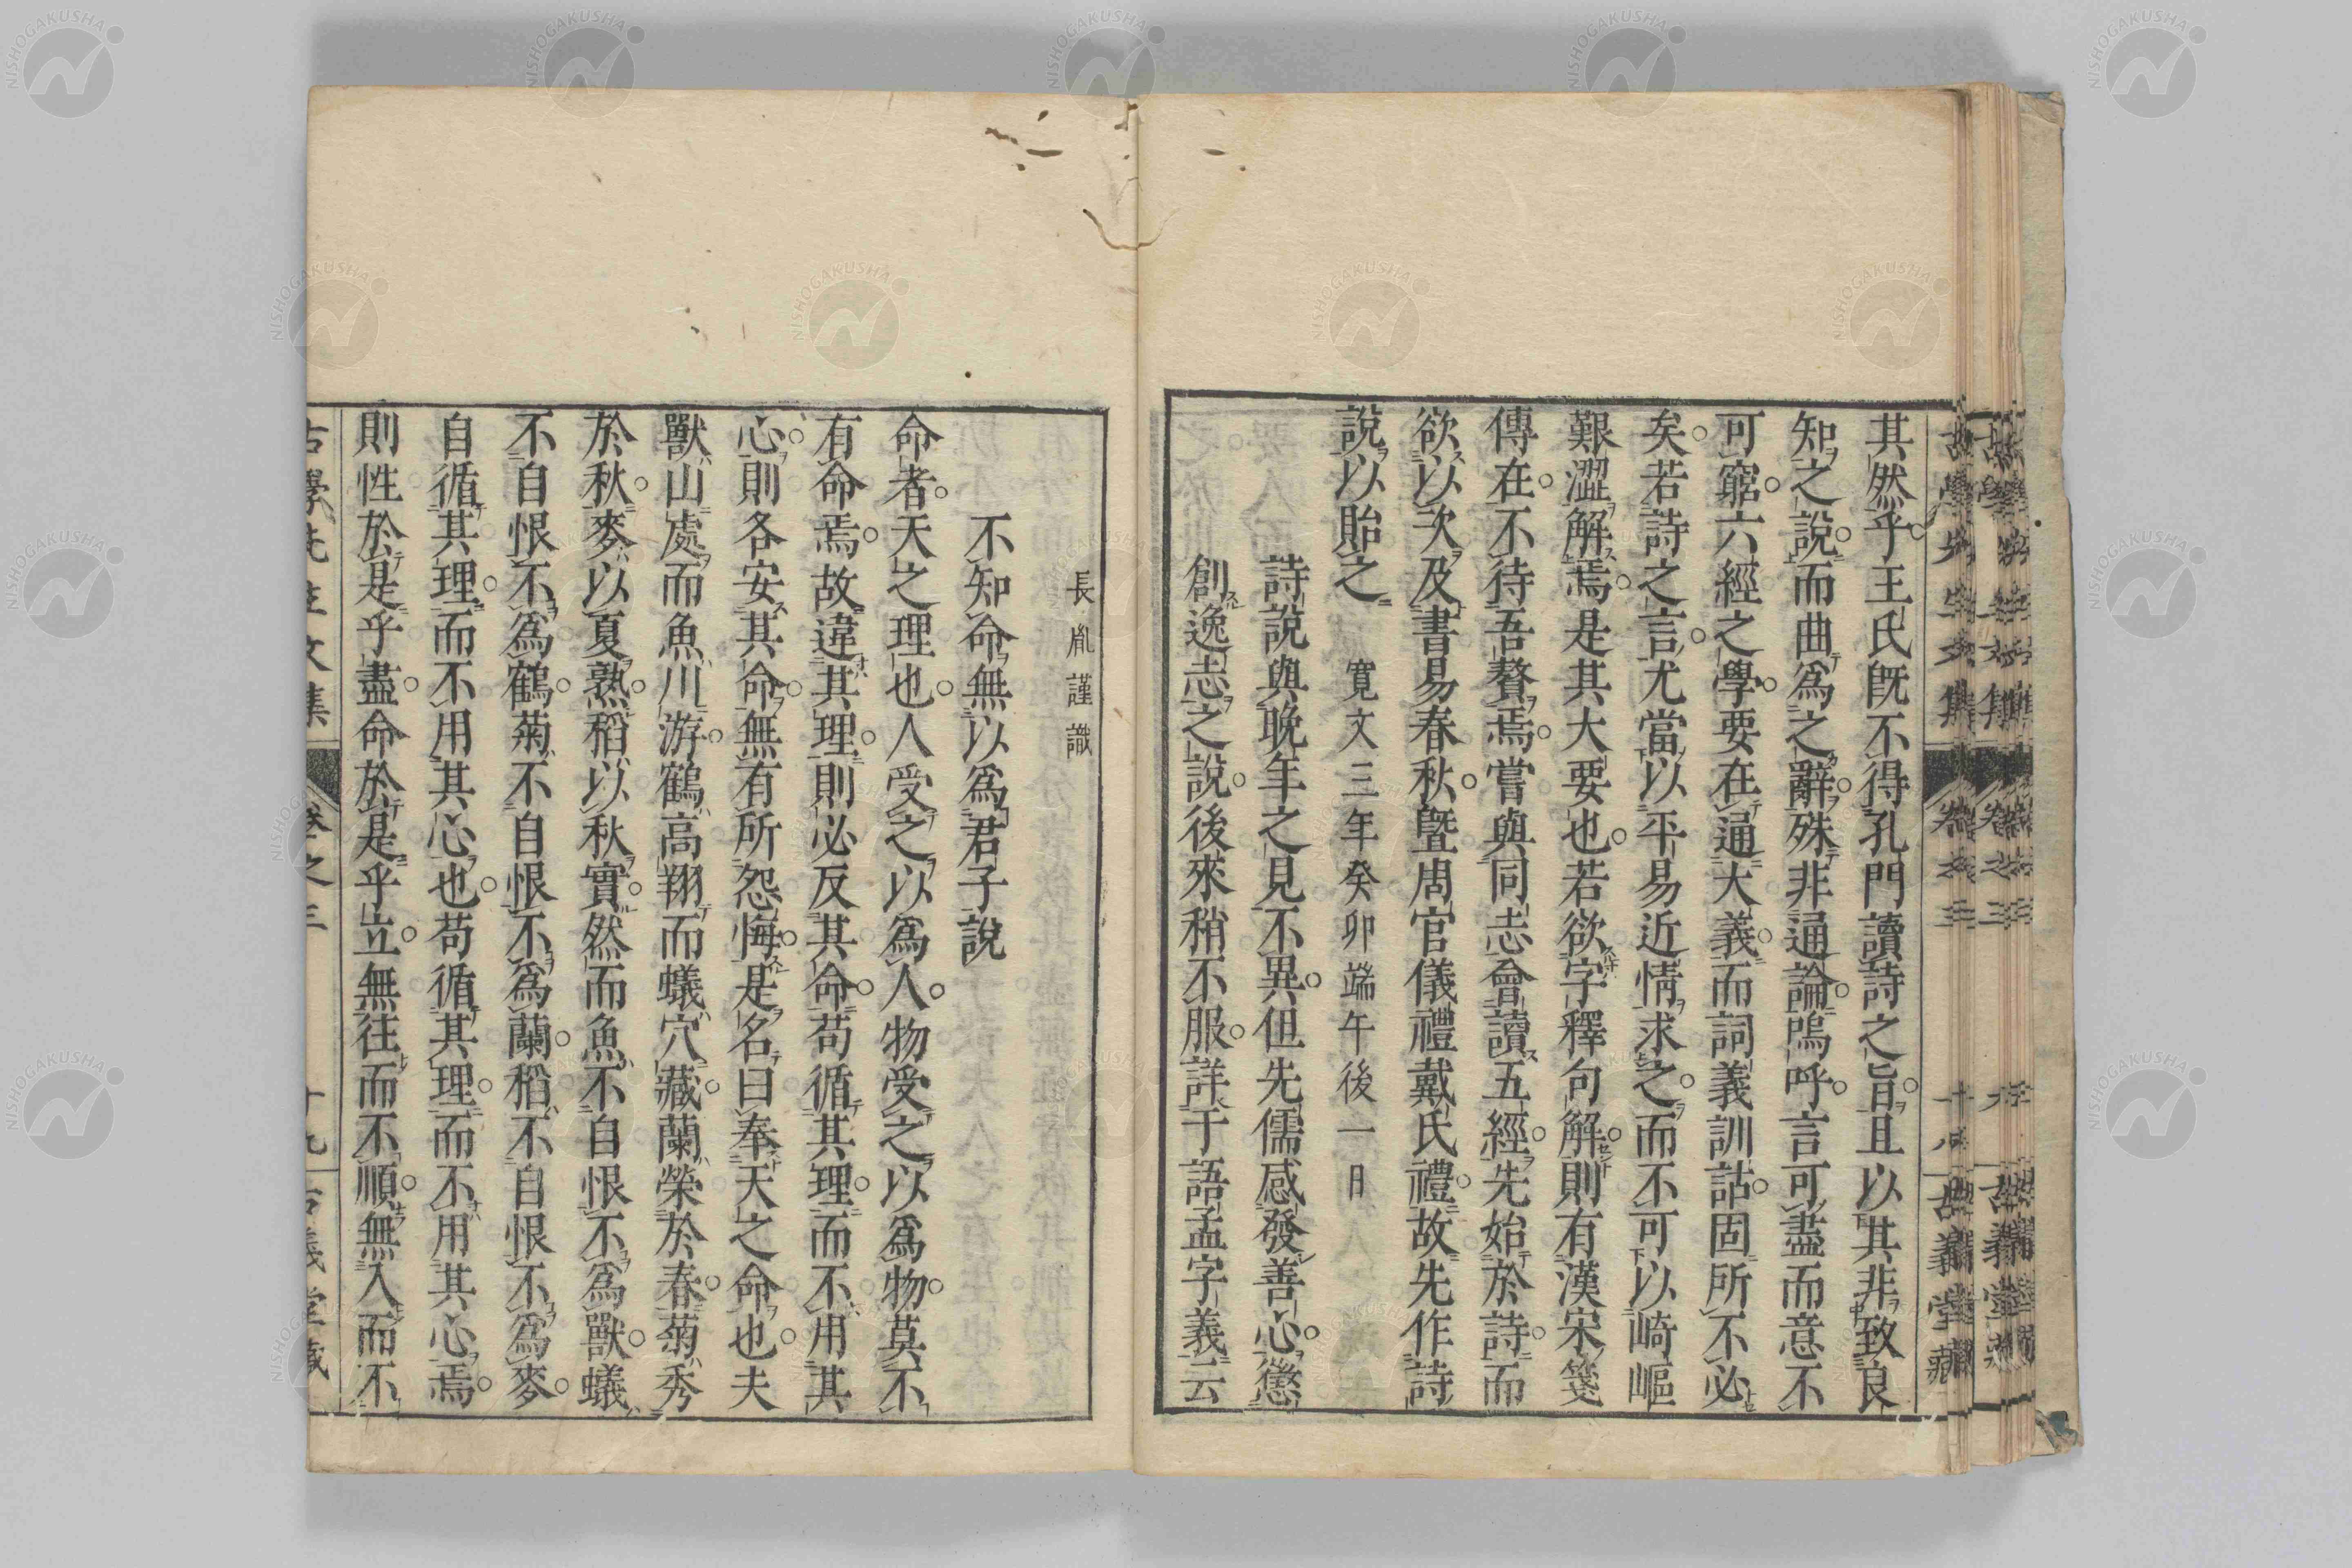 其然乎王氏既不得孔門讀詩之旨且以其非致良
知之說而曲爲之辭殊非通論嗚呼言可盡而意不
可窮六經之學要在通大義而詞義訓詁固所不必
矣若詩之言尤當以平易近情求之而不可以崎嶇
艱澀解焉是其大要也若欲字釋句解則有漢宋箋
傳在不待吾贅焉嘗與同志會讀五經先始於詩而
欲以次及書易春秋曁周官儀禮戴氏禮故先作詩
說以貽之 寛文三年癸卯端午後一日
詩說與晩年之見不異但先儒感發善心懲
創逸志之說後來稍不服詳于語孟字義云
長胤謹識
不知命無以爲君子說
命者天之理也人受之以爲人物受之以爲物莫不
有命焉故違其理則必反其命苟循其理而不用其
心則各安其命無有所怨悔是名曰奉天之命也夫
獸山處而魚川游鶴高翔而蟻穴藏蘭榮於春菊秀
於秋麥以夏熟稻以秋實然而魚不自恨不爲獸蟻
不自恨不爲鶴菊不自恨不爲蘭稻不自恨不爲麥
自循其理而不用其心也苟循其理而不用其心焉
則性於是乎盡命於是乎立無往而不順無入而不
古學先生文集 卷之三 十九 古義堂藏
NISHOGAKUSHA